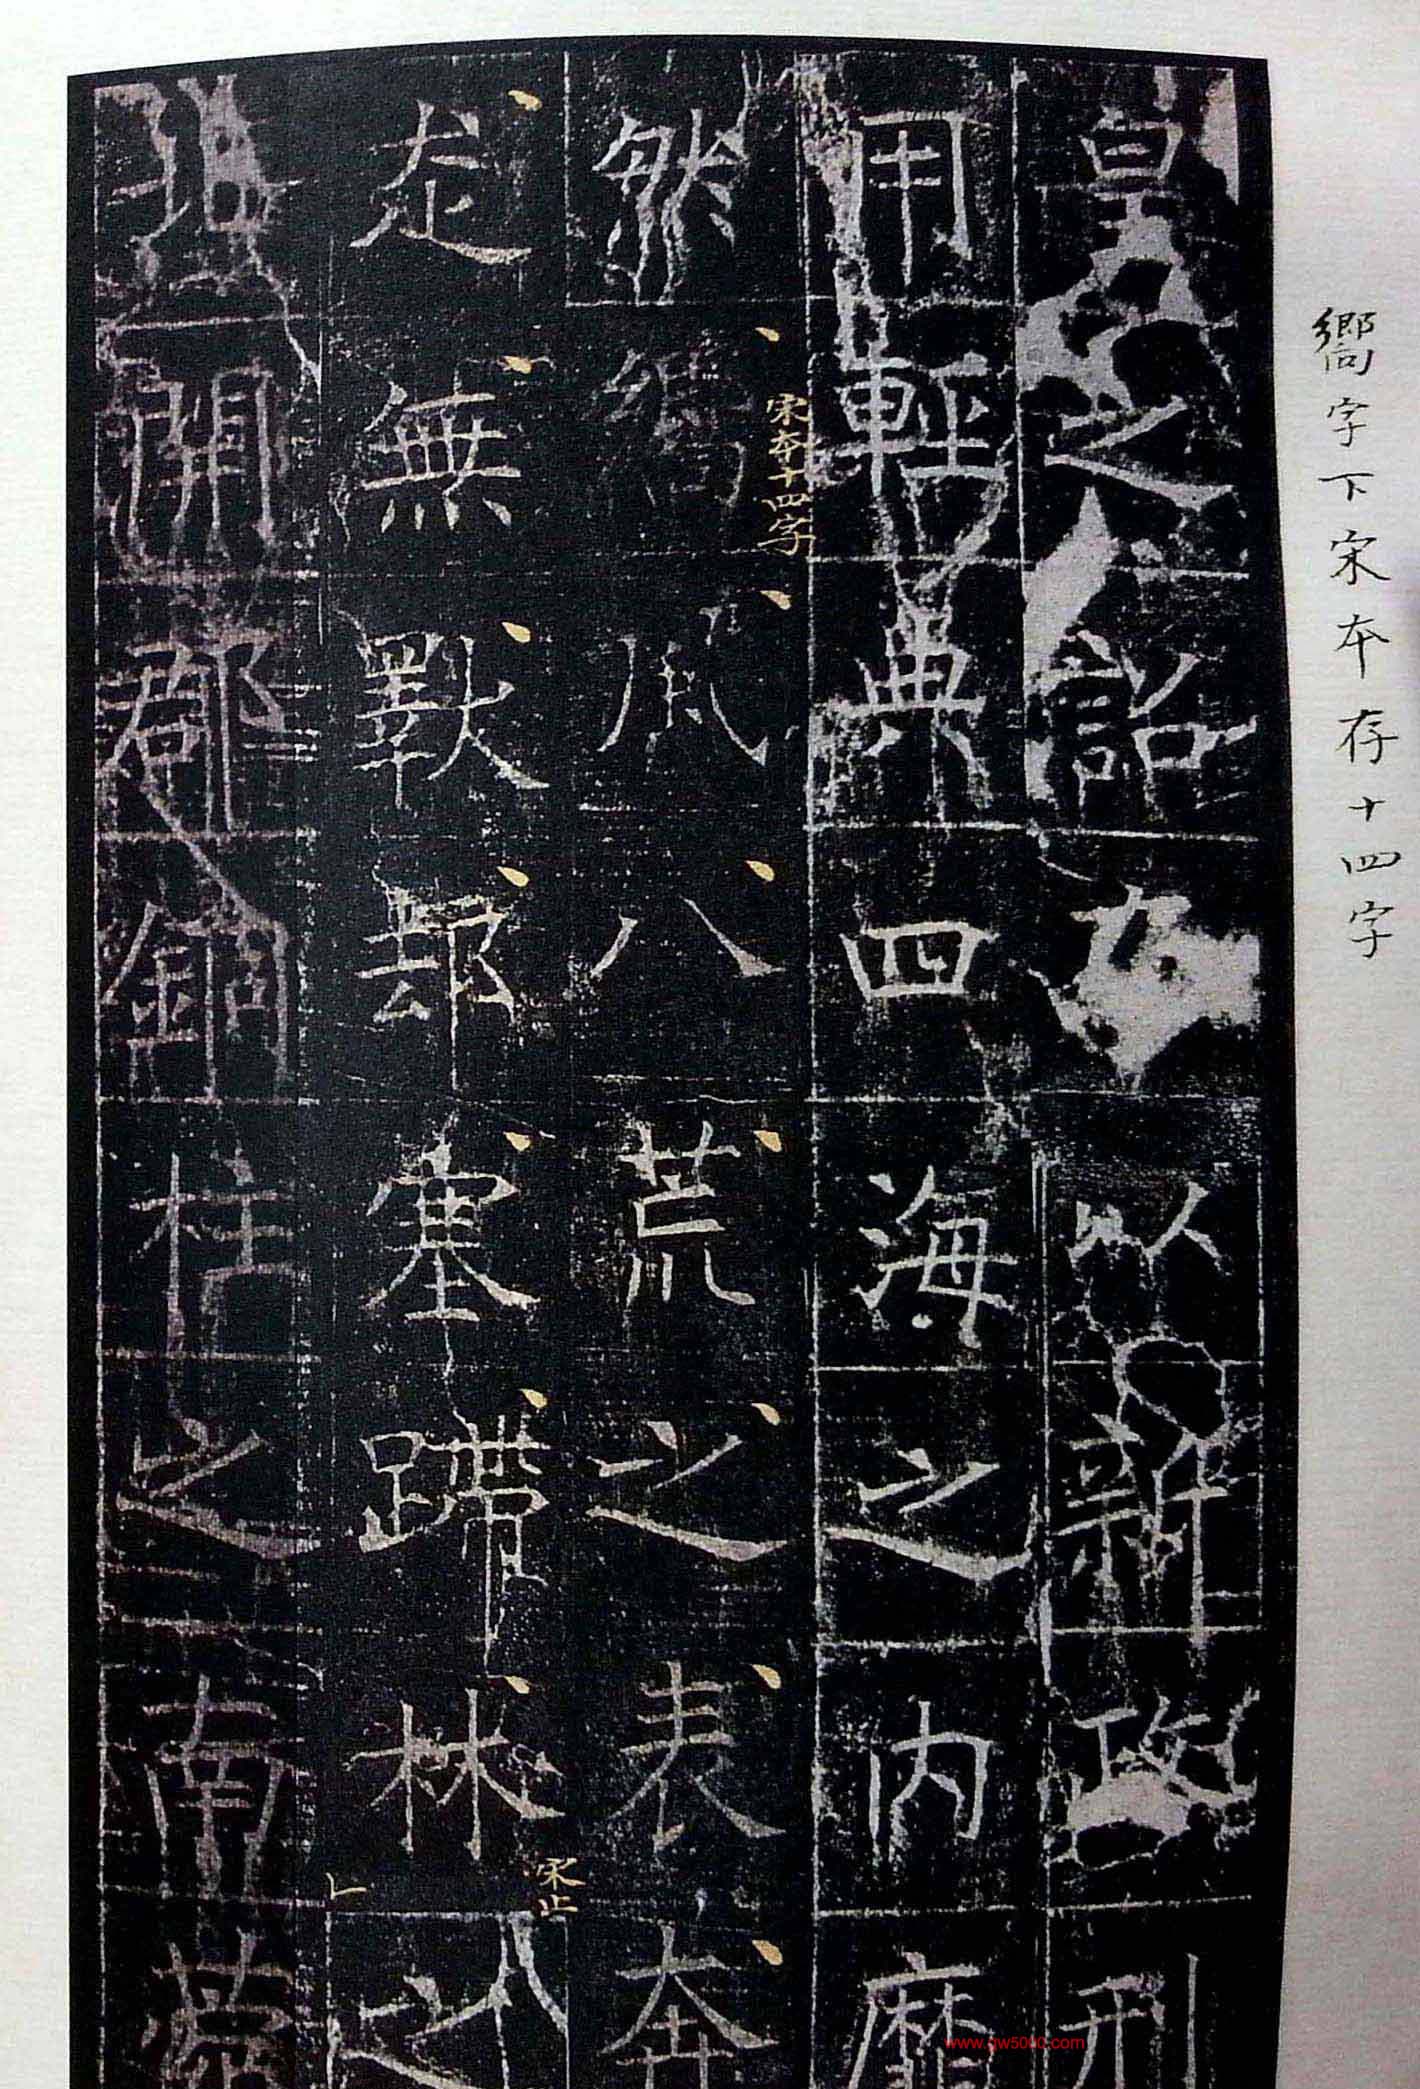 嚮字下宋本存十四字
皇之詔方以新政刑
用輕典四海之内靡
然嚮風八荒之表奔
宋本十四字
走無斁塞蹛林之
宋止
北開郡銅柱之南
www.gw5000.com